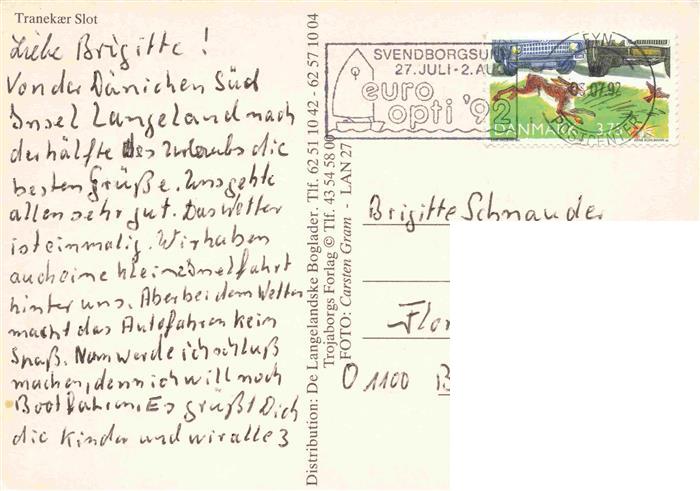 Tranekær Slot
Liebe Brigitte !
Von der Dänichen Süd
Insel Langeland nach
der hälfte des Urlaubs die
besten Grüße. Uns geht e
allen sehr gut. Das Wetter
ist einmalig. Wir haben
auch eine kleine Inselfahrt
hinter uns. Aber bei dem Wetter
macht das Autofahren kein
Spaß. Nun werde ich schluß
machen, denn ich will noch
Boot fahren. Es grüßt Dich
die Kinder und wir alle 3
Distribution: De Langelandske Boglader. Tlf. 62 51 10 42 - 62 57 10 04
Trojaborgs Forlag © Tlf. 43 54 58 00
FOTO: Carsten Gram - LAN 27
SVENDBORGSUND
27. JULI - 2. AUG
euro
opti '92
FYN
03.07.92
POSTCENTER
DANMARK 3.75
Brigitte Schnauder
Flor
O 1100 B